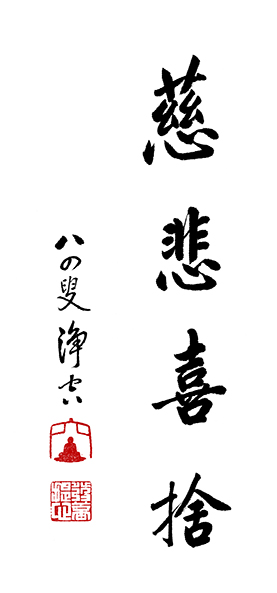 慈悲喜捨
八〇叟淨空